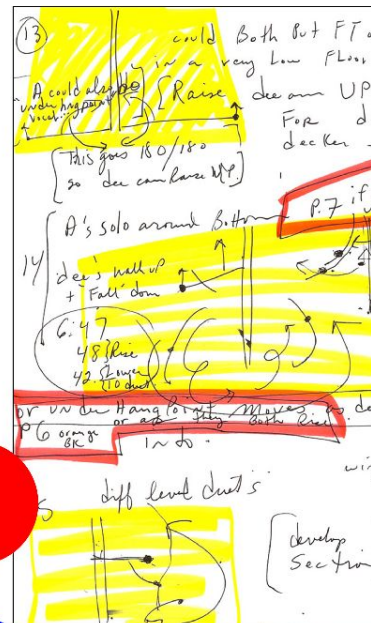 13
could Both Put FT
in a very Low Floor
A could also be
under hangpoint
[Raise dee arm UP
For d
decker
[This goes 180/180
so dee can Raise
P.7 if
14 [A's solo around Bottom
dee's walk up
+ Fall down
6:47
48 } Rise
Lower
To duet
or under Hang Point Moves as de
P 6 orange
BK
or as they Both Rise
into.
diff level duet's
[develop
Section